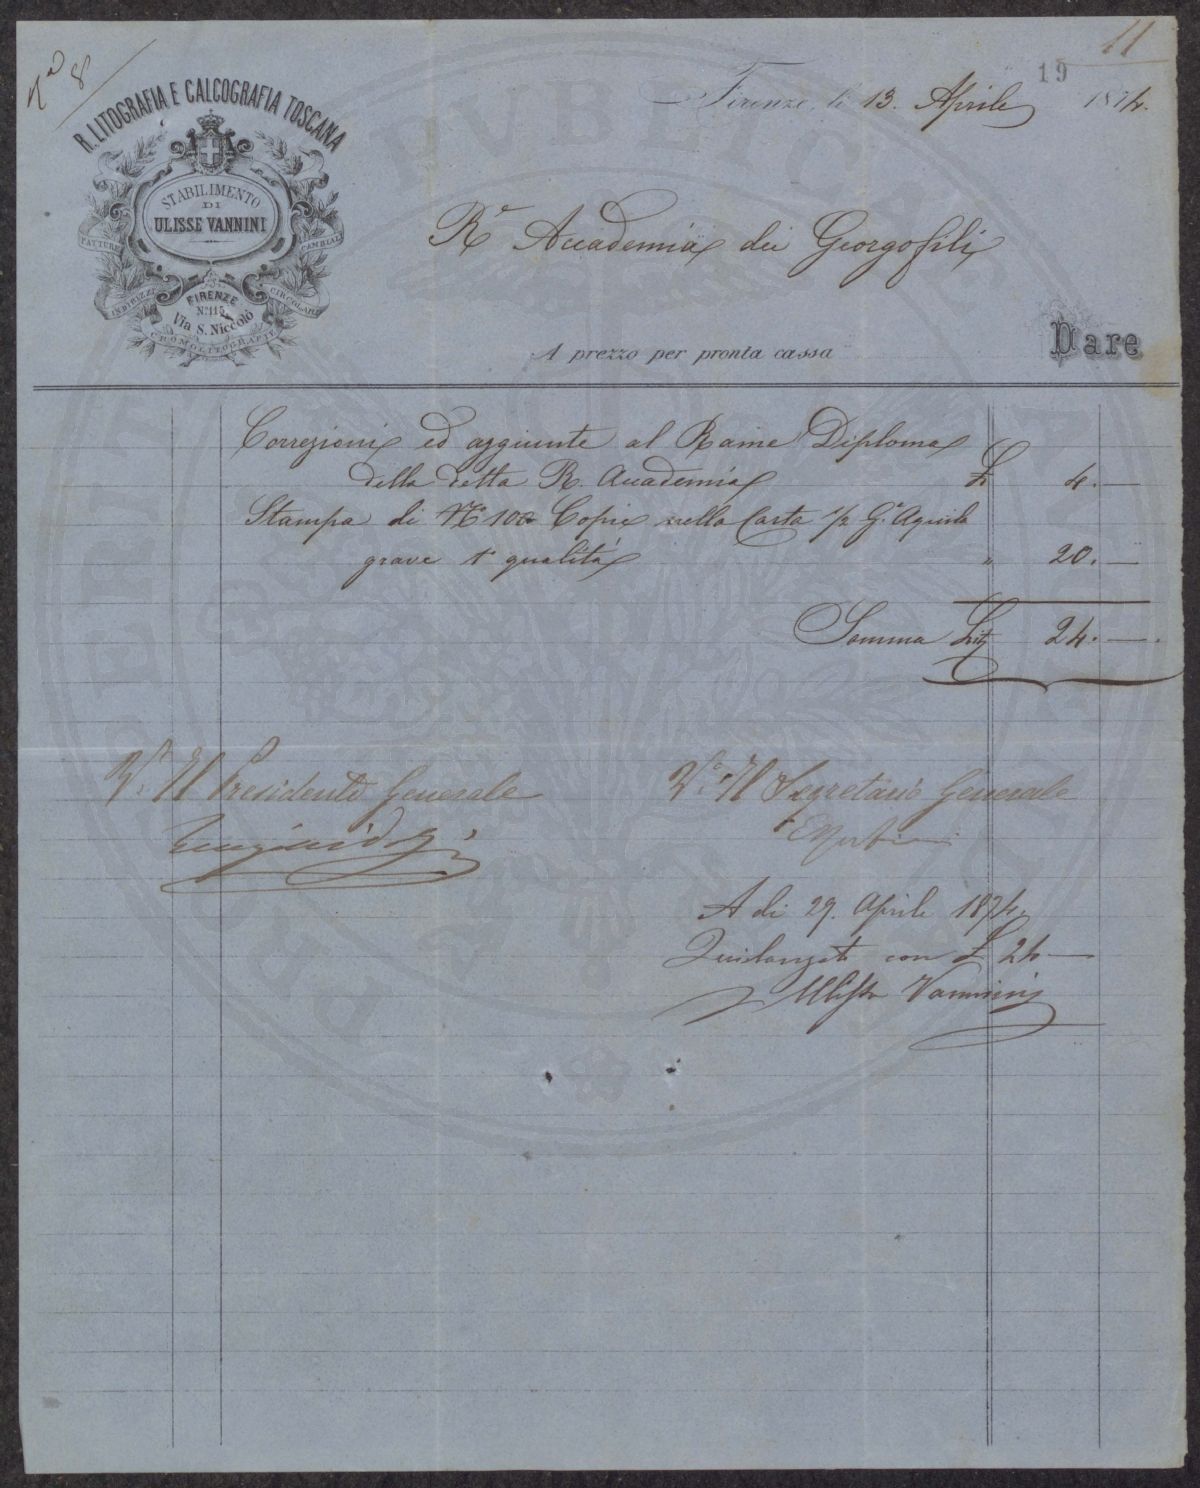 11
19
N.o 8
Firenze, li 13. Aprile 1874.
R. LITOGRAFIA E CALCOGRAFIA TOSCANA
STABILIMENTO
DI
ULISSE VANNINI
FATTURE
CAMBIALI
INDIRIZZI
CIRCOLARI
FIRENZE
No. 115
Via S. Niccolò
CROMOLITOGRAFIE
R.e Accademia dei Georgofili
A prezzo per pronta cassa
Dare
Correzioni ed aggiunte al Rame Diploma
della detta R. Accademia £ 4.—
Stampa di No 100 Copie nella Carta 1/2 G.e Aquila
grave 1a qualità " 20.—
Somma Lit 24.—
V.o Il Presidente Generale
V.o Il Segretario Generale
A di 29. Aprile 1874
Quietanzato con £ 24—
Ulisse Vannini
PUBLICAE
PROSPERITATI